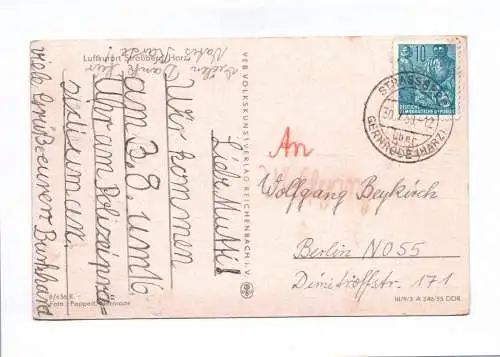 Luftkurort Straßberg/Harz
Vielen Dank für
Vatis Karte!
Liebe Mutti!
Wir kommen
am 3.8. um 16
Uhr am Polizeiprä-
sidium an.
viele Grüße eurer Burkhard
8/636 K
VEB VOLKSKUNSTVERLAG REICHENBACH i. V.
An
Wolfgang Beykirch
Berlin NO55
Dimitroffstr. 171
III/9/3 A 246/55 DDR
10
DEUTSCHE
DEMOKRATISCHE REPUBLIK
STRASSBERG
über
GERNRODE (HARZ)